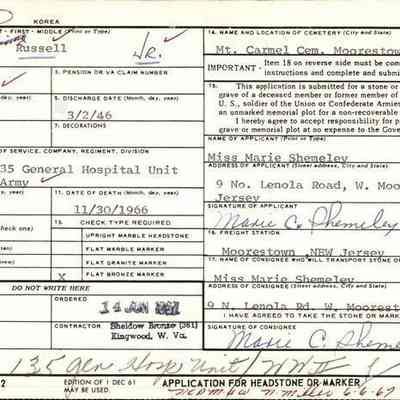 KOREA
- FIRST - MIDDLE (Print or Type)
Russell Jr.
14. NAME AND LOCATION OF CEMETERY (City and State)
Mt. Carmel Cem. Moorestown
IMPORTANT - Item 18 on reverse side must be com
instructions and complete and submit
5. PENSION OR VA CLAIM NUMBER
day, year)
6. DISCHARGE DATE (Month, day, year)
3/2/46
7. DECORATIONS
15. This application is submitted for a stone or
grave of a deceased member or former member of the
U. S., soldier of the Union or Confederate Armies
an unmarked memorial plot for a non-recoverable
I hereby agree to accept responsibility for p
grave or memorial plot at no expense to the Gover
NAME OF APPLICANT (Print or Type)
Miss Marie Shemeley
OF SERVICE, COMPANY, REGIMENT, DIVISION
35 General Hospital Unit
Army
ADDRESS OF APPLICANT (Street address, City and State)
9 No. Lenola Road, W. Moo
Jersey
year)
11. DATE OF DEATH (Month, day, year)
11/30/1966
SIGNATURE OF APPLICANT
Marie C. Shemeley
(Check one)
13. CHECK TYPE REQUIRED
UPRIGHT MARBLE HEADSTONE
FLAT MARBLE MARKER
FLAT GRANITE MARKER
X FLAT BRONZE MARKER
16. FREIGHT STATION
Moorestown, NEW Jersey
17. NAME OF CONSIGNEE WHO WILL TRANSPORT STONE OR
Miss Marie Shemeley
DO NOT WRITE HERE
ADDRESS OF CONSIGNEE (Street address, City and State)
9 N. Lenola Rd. W. Moorest
ORDERED
14 JUN
I HAVE AGREED TO TAKE THE STONE OR MARK
CONTRACTOR
Sheidow Bronze (361)
Kingwood, W. Va.
SIGNATURE OF CONSIGNEE
Marie C. Sheme
135 Gen Hosp Unit / WW II
2
EDITION OF 1 DEC 61
MAY BE USED.
APPLICATION FOR HEADSTONE OR MARKER
6-6-67